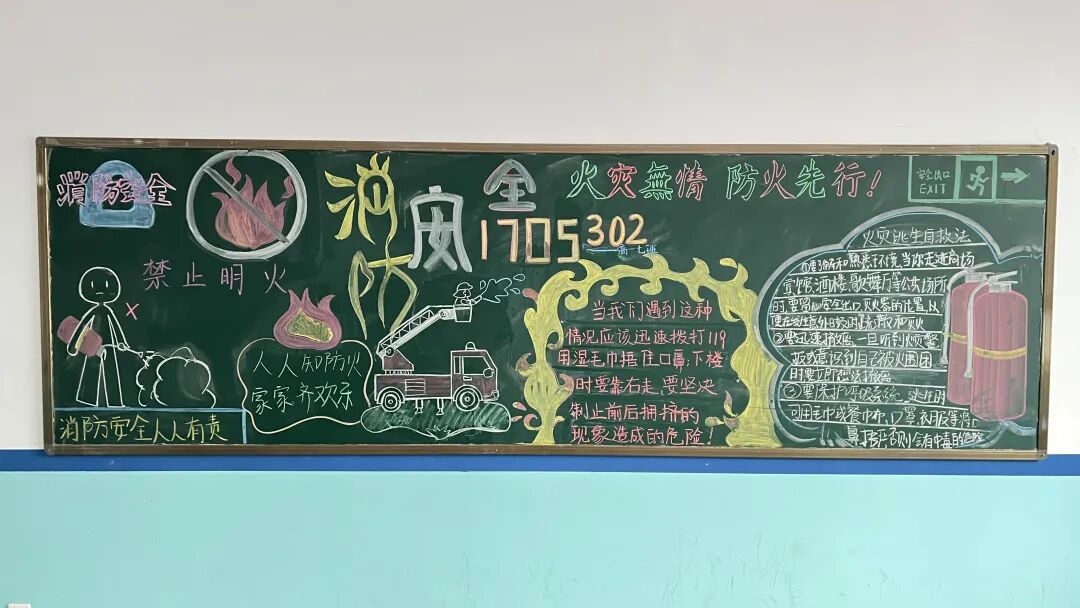 消防安全
禁止明火
消防安全人人有责
人人知防火
家家齐欢乐
消防安全
1705302
高七班
火灾無情 防火先行!
当我们遇到这种
情况应该迅速拨打119
用湿毛巾捂住口鼻,下楼
时要靠右走,要坚决
制止前后拥挤的
现象造成的危险!
安全出口
EXIT
火灾逃生自救法
①要了解和熟悉环境,当你走进商场
宾馆、酒楼、歌舞厅等公共场所
时,要留心安全出口,灭火器的位置,以
便在发生意外时及时疏散和灭火
②要迅速撤离,一旦听到火灾警
或意识到自己被火围困
时要立即想法撤离
③要保护呼吸系统,逃生时
可用毛巾或餐巾布,口罩,衣服等将口
鼻捂严,否则会有中毒的危险